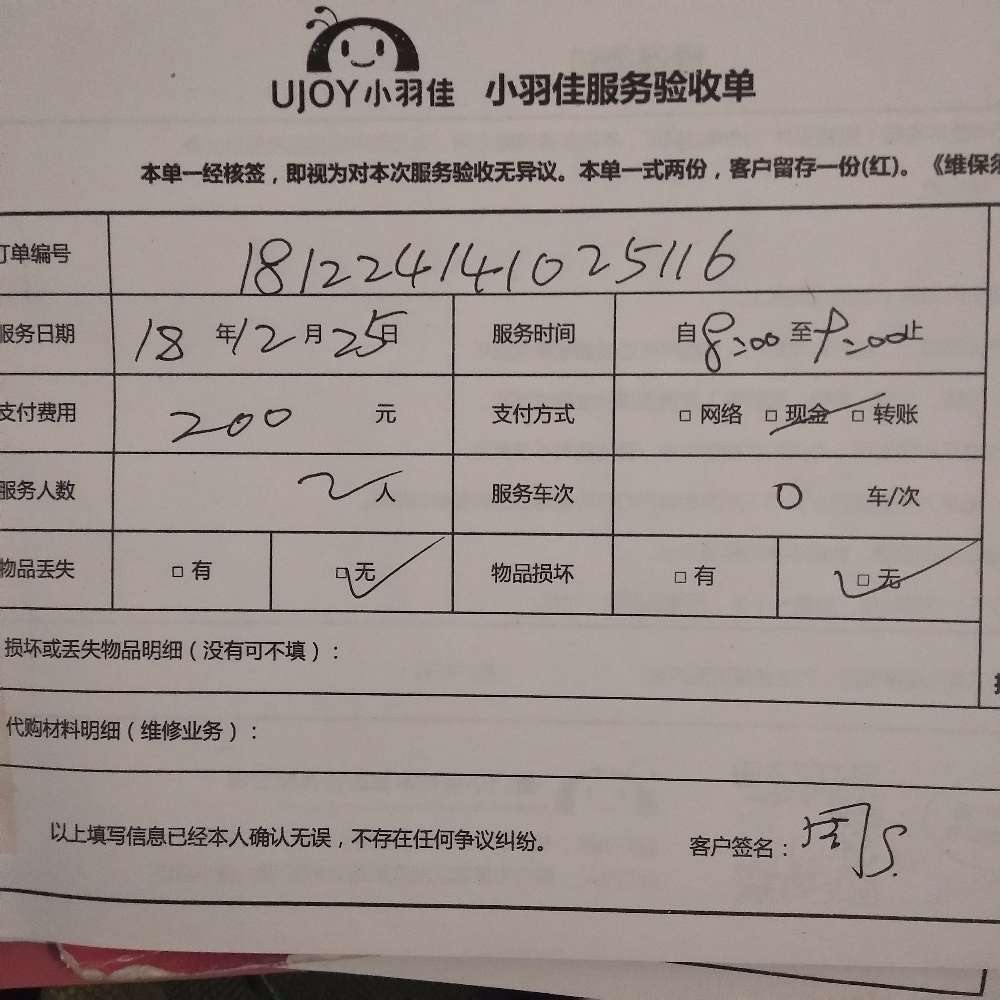 UJOY小羽佳 小羽佳服务验收单
本单一经核签，即视为对本次服务验收无异议。本单一式两份，客户留存一份(红)。《维保须
订单编号 181224141025116
服务日期 18 年 12 月 25 日 服务时间 自 8:00 至 9:00 止
支付费用 200 元 支付方式 □ 网络 □ 现金 □ 转账
服务人数 2 人 服务车次 0 车/次
物品丢失 □ 有 □ 无 物品损坏 □ 有 □ 无
损坏或丢失物品明细（没有可不填）：
代购材料明细（维修业务）：
以上填写信息已经本人确认无误，不存在任何争议纠纷。 客户签名：周S.